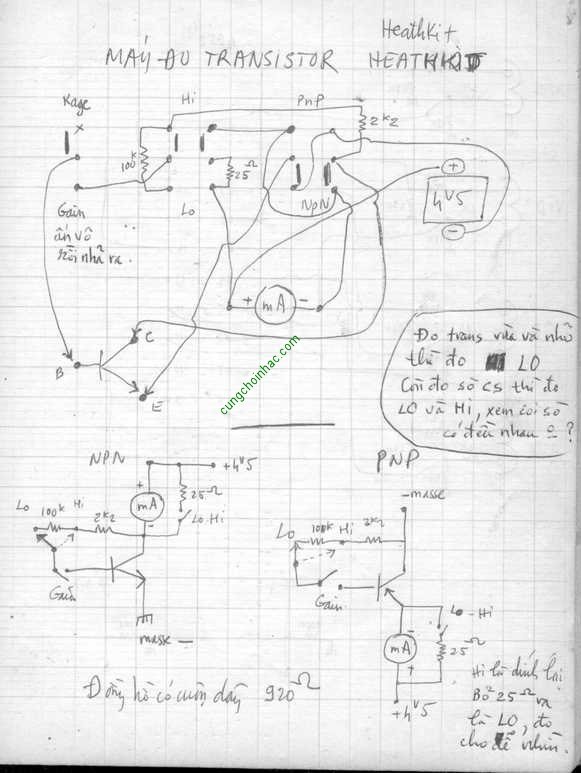 HeathKit
MÁY ĐO TRANSISTOR HEATHKIT
Hi
PnP
2K2
100K
25Ω
+
4V5
-
Gain
ấn vô
rồi nhả ra.
Lo
NPN
+ mA -
B
C
E
cungchoinhac.com
Đo trans vừa và nhỏ
thì đo LO
Còn đo sò CS thì đo
LO và Hi, xem coi số
có đều nhau ?
NPN
+4V5
+
mA
-
25Ω
Lo-Hi
Lo
100K
Hi
2K2
Gain
masse -
PNP
-masse
Lo
100K
Hi
2K2
Gain
Lo-Hi
-
mA
+
25Ω
+4V5
Đồng hồ có cuộn dây 920Ω
Hi là dính lại
Bỏ 25Ω ra
là LO, đo
cho dễ nhìn.